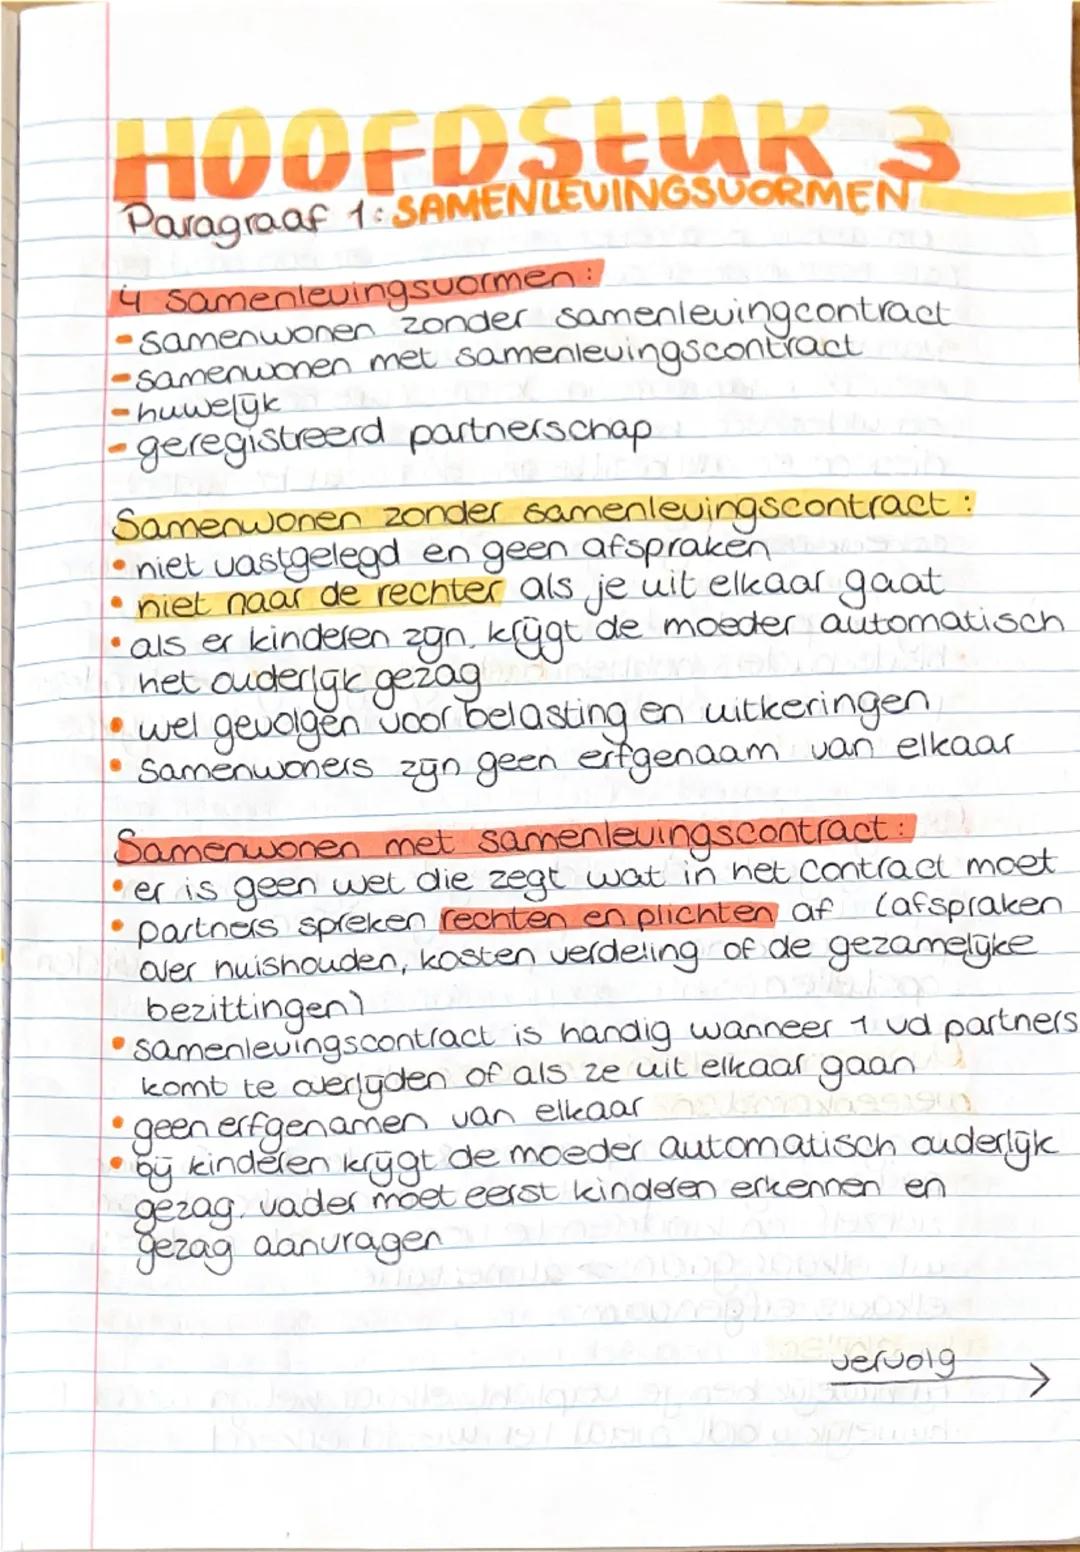 HOOFDStUK 3
Paragraaf 1: SAMENLEVINGSVORMEN
4 samenlevingsvormen:
- samenwonen zonder samenlevingcontract
- samenwonen met samenlevingscontract
- huwelijk
- geregistreerd partnerschap
Samenwonen zonder samenlevingscontract:
• niet vastgelegd en geen afspraken
• niet naar de rechter als je uit elkaar gaat
• als er kinderen zijn, krijgt de moeder automatisch
het ouderlijk gezag
• wel gevolgen voor belasting en uitkeringen
• Samenwoners zijn geen erfgenaam van elkaar
Samenwonen met samenlevingscontract:
• er is geen wet die zegt wat in het contract moet
• partners spreken rechten en plichten af (afspraken
over huishouden, kosten verdeling of de gezamelijke
bezittingen)
• samenlevingscontract is handig wanneer 1 vd partners
komt te overlijden of als ze uit elkaar gaan
• geen erfgenamen van elkaar
• bij kinderen krijgt de moeder automatisch ouderlijk
gezag. vader moet eerst kinderen erkennen en
gezag aanvragen
vervolg →